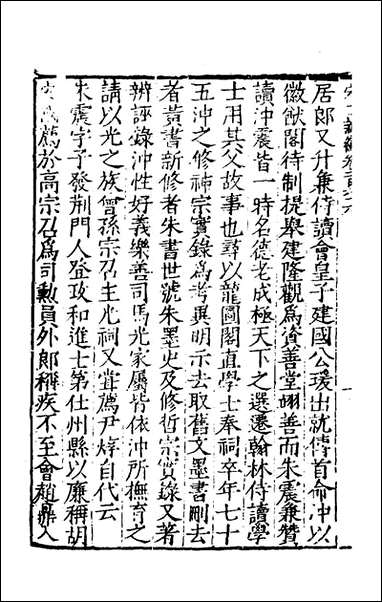 居郎又升兼侍讀會皇子建國公瑗出就傅首命冲以
徽猷閣待制提舉建隆觀爲資善堂翊善而朱震兼贊
讀冲震皆一時名德老成極天下之選遷翰林侍讀學
士用其父故事也尋以龍圖閣直學士奉祠卒年七十
五冲之修神宗實錄爲考異明示去取舊文墨書刪去
者黄書新修者朱書世號朱墨史及修哲宗實錄又著
辨誣錄冲性好義樂善司馬光家屬皆依冲所撫育之
請以光之族曾孫宗召主光祠又嘗薦尹焞自代云
朱震字子發荆門人登政和進士第仕州縣以廉稱胡
安國薦於高宗召爲司勲員外郎稱疾不至會趙鼎入